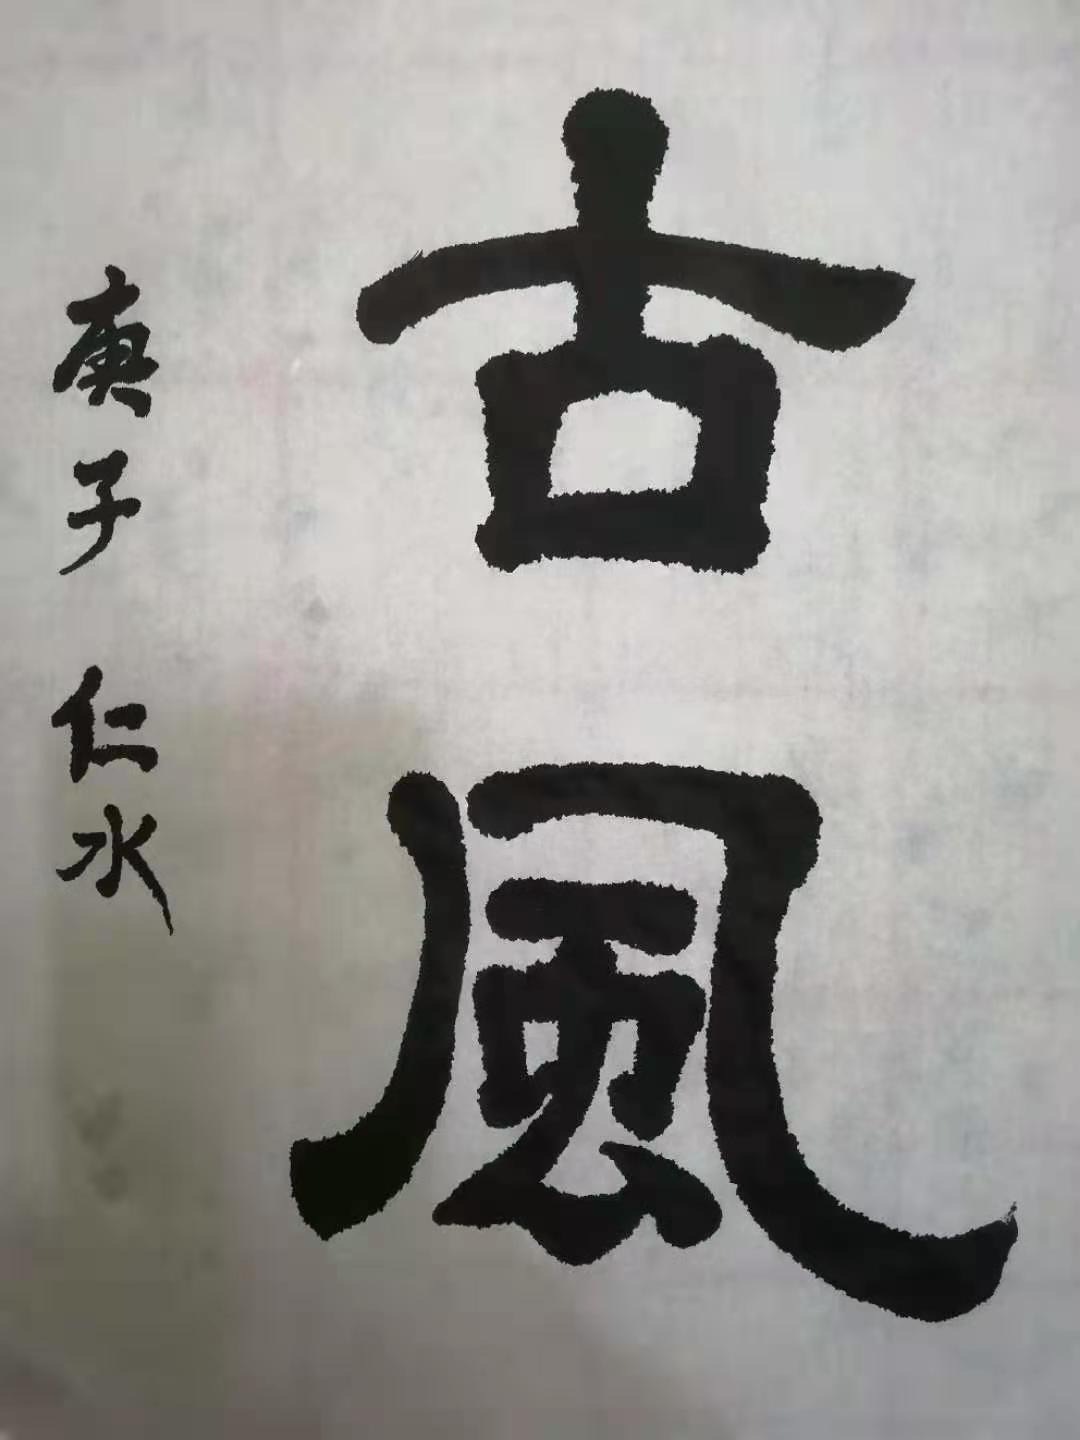 古風
庚子 仁水